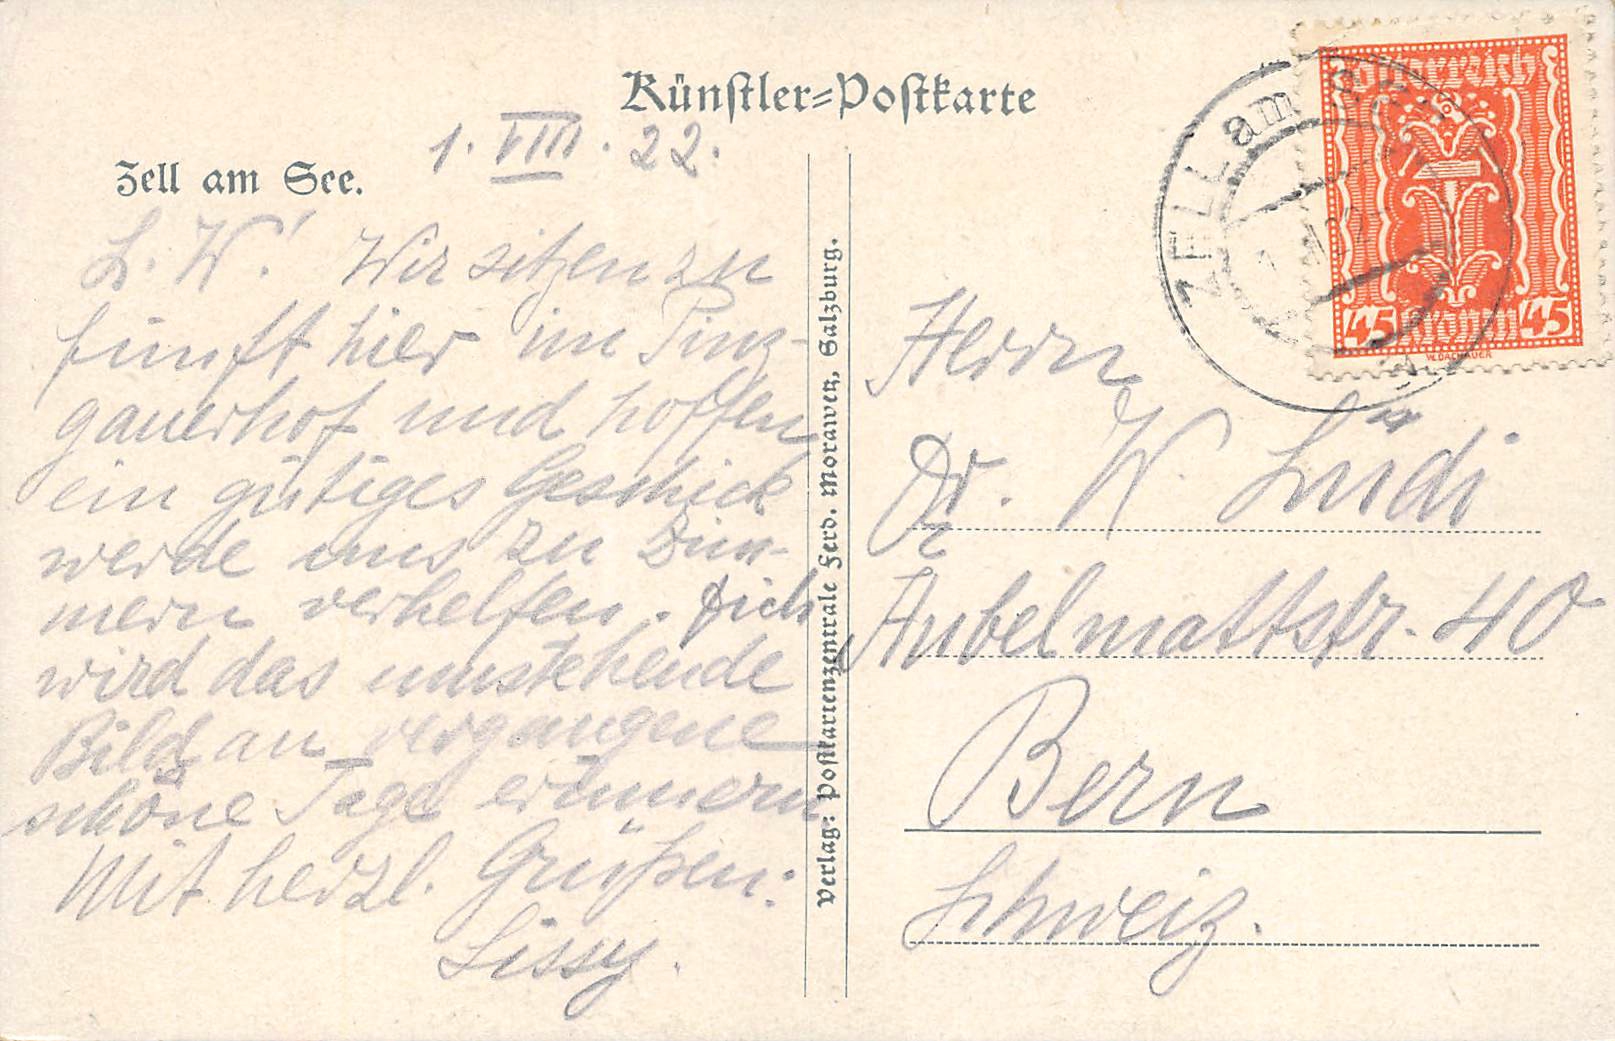 Künstler=Postkarte
Zell am See.
1. VIII. 22.
L. W.! Wir sitzen zu
fünft hier im Pinz-
gauerhof und hoffen
ein gütiges Geschick
werde uns zu Zim-
mern verhelfen. Dich
wird das umstehende
Bild an vergangene
schöne Tage erinnern
Mit herzl. Grüßen:
Lissy.
Verlag: Postkartenzentrale Ferd. Morawetz, Salzburg.
ZELL am SEE
Österreich
45 Kronen 45
W. DACHAUER
Herrn
Dr. W. Lüdi
Aubelmattstr. 40
Bern
Schweiz.